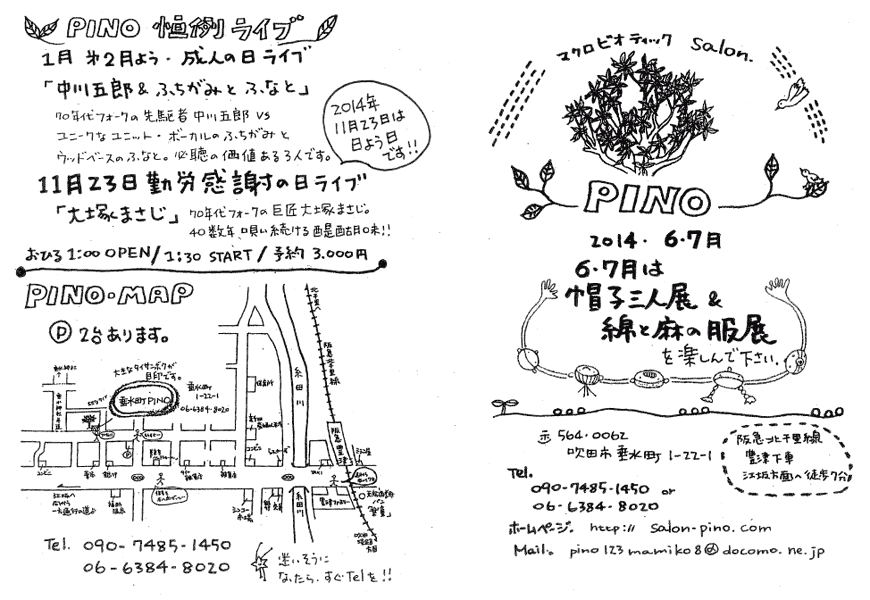 PINO 恒例ライブ
1月 第2月よう・成人の日ライブ
「中川五郎&ふちがみとふなと」
70年代フォークの先駆者 中川五郎 VS
ユニークなユニット・ボーカルのふちがみと
ウッドベースのふなと。必聴の価値ある3人です。
2014年
11月23日は
日よう日
です!!
11月23日勤労感謝の日ライブ
「大塚まさじ」70年代フォークの巨匠大塚まさじ。
40数年、唄い続ける醍醐味!!
おひる1:00 OPEN/1:30 START/予約 3.000円
PINO・MAP
P 2台あります。
大きなタイサンボクが
目印です。
垂水町PINO
垂水町
1-22-1
06-6384-8020
糸田川
阪急北千里線
阪急豊津
コンビニ
糸田川
Tel. 090-7485-1450
06-6384-8020
迷いそうに
なったら、すぐTelを!!
マクロビオティック Salon.
PINO
2014. 6・7月
6・7月は
帽子三人展 &
綿と麻の服展
を楽しんで下さい。
〒564-0062
吹田市垂水町1-22-1
Tel.
090-7485-1450 or
06-6384-8020
阪急・北千里線
豊津下車
江坂方面へ徒歩7分
ホームページ。 http:// salon-pino.com
Mail。 pino123mamiko8@docomo.ne.jp